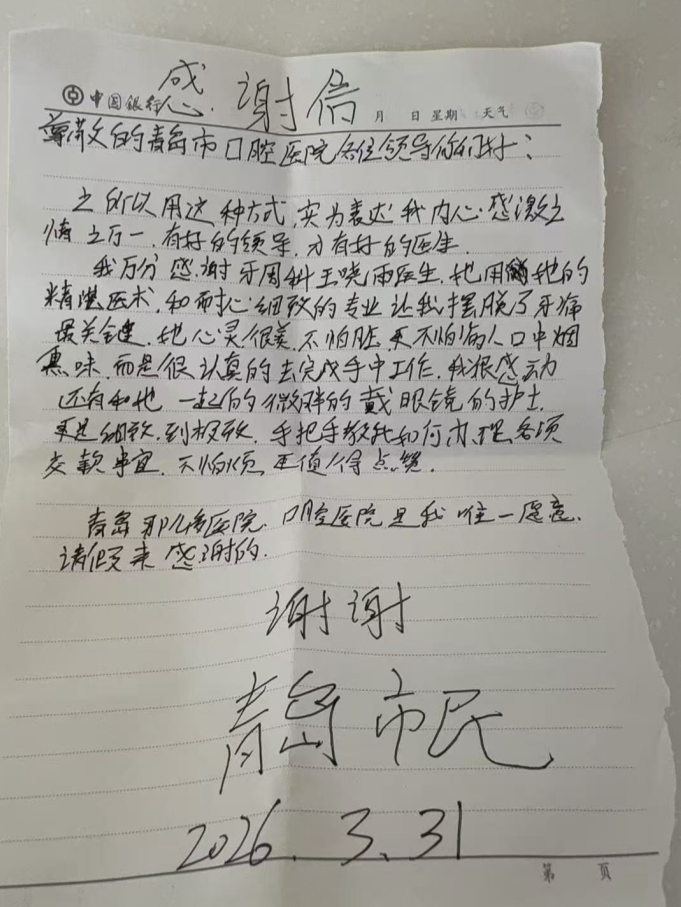 感谢信
中国银行 月 日 星期 天气
尊敬的青岛市口腔医院各位领导你们好:
之所以用这种方式,实为表达我内心感激之
情之万一,有好的领导,才有好的医生.
我万分感谢牙周科王晓雨医生,她用她的
精湛医术,和耐心细致的专业让我摆脱了牙痛
最关键,她心灵很美,不怕脏,更不怕病人口中烟
熏味,而是很认真的去完成手中工作,我狠感动
还有和她一起的微胖的戴眼镜的护士,
更是细致到极致,手把手教我如何办理各项
交款事宜,不怕烦,更值得点赞.
青岛那么多医院,口腔医院是我唯一愿意
请假来感谢的.
谢谢
青岛市民
2026.3.31
第 页